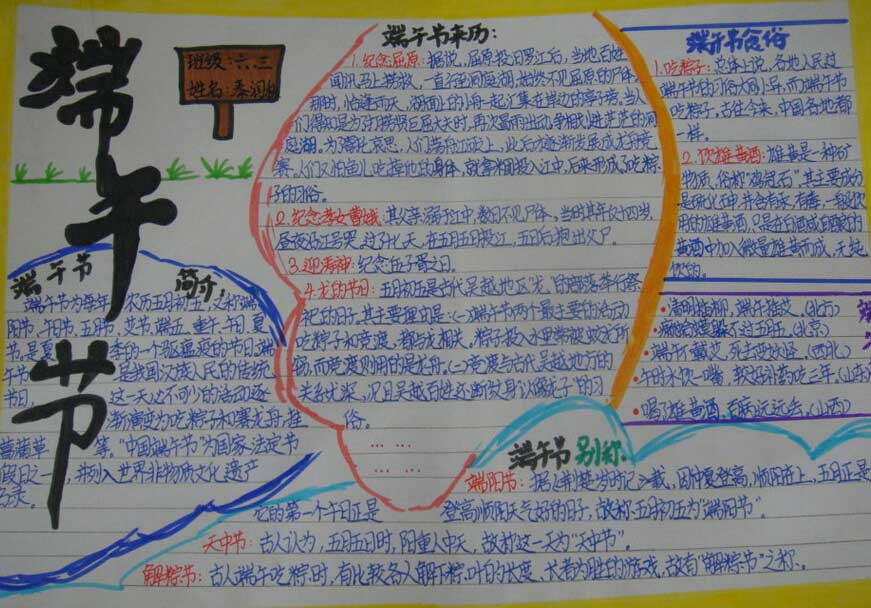 端午节
班级:六.三
姓名:
端午节来历:
1.纪念屈原:据说,屈原投汨罗江后,当地百姓
闻讯马上
那时,恰逢雨天,湖面上的小舟一起汇集在岸边的亭子旁.当人
们得知是为了打捞贤臣屈大夫时,再次冒雨出动,争相划进茫茫的洞
庭湖.为寄托哀思,人们荡舟江河上,此后才逐渐发展成龙舟竞
赛.人们又怕鱼儿吃掉他的身体,就拿米团投入江中,后来形成了吃粽
子的习俗。
2.纪念孝女曹娥:其父亲溺于江中,数日不见尸体,当时其年仅十四岁,
昼夜沿江号哭,过了十七天,在五月五日投江,五日后抱出父尸。
3.迎涛神:纪念伍子胥之日。
4.龙的节日:五月初五是古代吴越地区"龙"的部落举行祭
祀的日子.其主要理由是:(一)端午节两个最主要的活动
吃粽子和竞渡,都与龙相关。粽子投入水里常被蛟龙所
窃,而竞渡则用的是龙舟。(二)竞渡与古代吴越地方的
关系尤深,况且吴越百姓还断纹身以像龙子"的习
俗。
... ...
... ...
端午节食俗
1.吃粽子:总体上说,各地人民过
端午节的习俗大同小异,而端午节
吃粽子,古往今来,中国各地都
一样。
2.饮雄黄酒:雄黄是一种矿
物质,俗称"鸡冠石",其主要成分
是硫化砷,并含有汞,有毒.一般饮
用的雄黄酒,只是在白酒或自酿的
黄酒中加入微量雄黄而成,无纯
饮的。
•清明插柳,端午插艾。(北方)
•癞蛤蟆躲不过五月五。(北京)
•端午不戴艾,死去变妖怪。(西北)
•午时水饮一嘴,较好补药吃三年。(山东)
•喝了雄黄酒,百病远远丢。(山西)
端午节 简介:
端午节为每年农历五月初五,又称端
阳节、午日节、五月节、艾节、端五、重午、午日、夏
节,是夏季的一个驱瘟疫的节日.端
午节一是我国汉族人民的传统
节日,这一天必不可少的活动逐
渐演变为吃粽子和赛龙舟,挂
菖蒲草等。"中国端午节"为国家法定节
假日之一,并列入世界非物质文化遗产
名录。
端午节别称
端阳节:据《荆楚岁时记》载,因仲夏登高,顺阳在上,五月正是
它的第一个午日正是登高顺阳天气好的日子,故称五月初五为"端阳节"。
天中节:古人认为,五月五日时,阳重入中天,故称这一天为"天中节"。
解粽节:古人端午吃粽时,有比较各人解下粽叶的长度、长者为胜的游戏,故有"解粽节"之称。